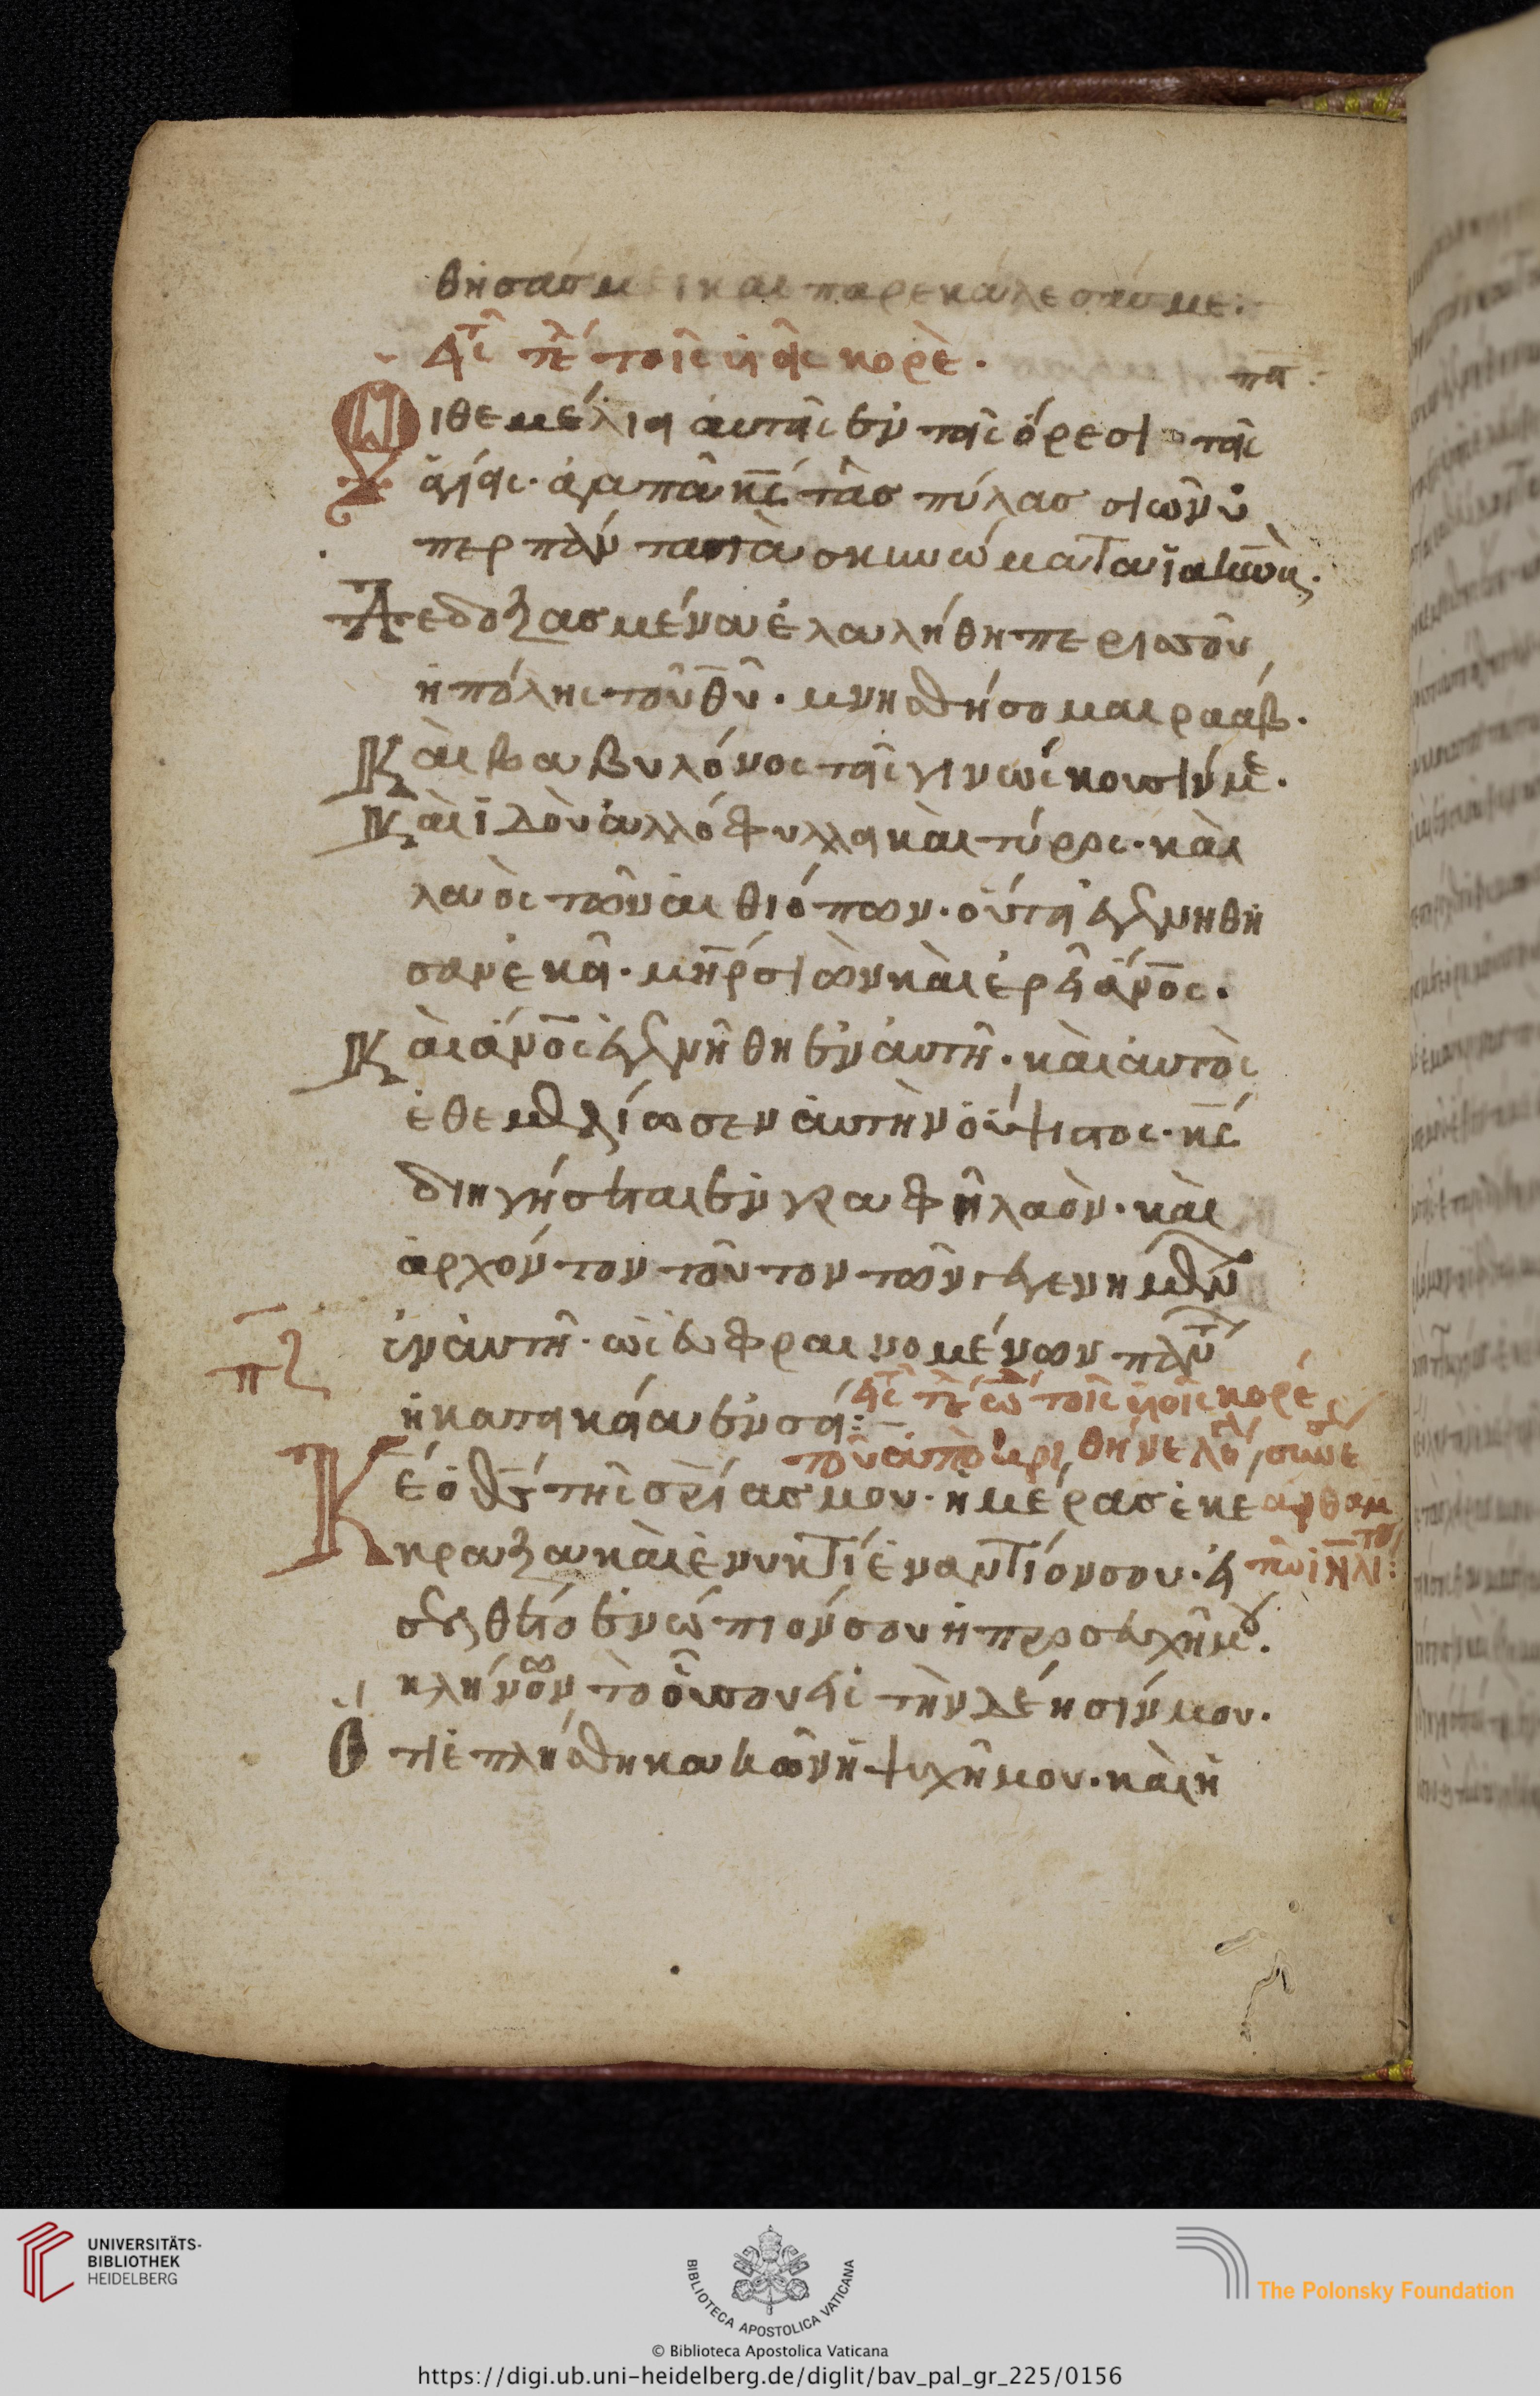 θησάσ με καὶ παρεκάλεσάσ με:
εἰς τ τοῖς υἱοῖς κορὲ.
πϛ
Οἱ θεμέλιοι ἀυτοῖς ἐν τοῖς ὄρεσι τοῖς
ἁγίοις. ἀγαπᾶ κς τὰσ πύλασ σιῶν ὑ
περ πάντα τὰ σκηνώματα ϊακώβ.
Δεδοξασμένα ἐλαλήθη περι σοῦ
ἡ πόλης τοῦ θῦ. μνησθήσομαι ραάβ.
Καὶ βαβυλόνος τοῖς γινώσκουσίν με.
Καὶ ϊδοὺ ἀλλόφυλλοι καὶ τύρρος. καὶ
λαὸς τῶν αἰθιόπων. οὗτοι ἐγενήθη
σαν ἐκεῖ. μηρ σιὼν καὶ ἐρεῖ ἄνος.
Καὶ ἄνος ἐγενήθη ἐν ἀυτῆ. καὶ ἀυτὸς
ἐθεμελίωσεν ἀυτὴν ὁ ὕψιστος. κς
διηγήσεται ἐν γραφῆ λαὸν. καὶ
ἀρχόντον τοῦτον τῶν γεγενημένων
ἐν ἀυτῆ. ὡς ἐυφραινομένων πάντων
πζ
ἡ κατοικία ἐν σοί:
εἰς τ ὠ τοῖς υἱοῖς κορέ
τοῦ ἀποκριθήνε
Κε ὁ θς τῆς σρίασ μου. ἡμέρασ ἐκε
κραξα καὶ ἐν νυκτὶ ἐναντίον σου. εἰ
τῶ ἰηλι:
σελθέτω ἐνώπιόν σου ἡ προσευχῆ μου.
κλῆνον τὸ οὖσ σου εἰς τὴν δέησίν μου.
Ὁτι ἐπλήσθη κακῶν ἡ ψυχῆ μου. καὶ ἡ
UNIVERSITÄTS-
BIBLIOTHEK
HEIDELBERG
BIBLIOTECA APOSTOLICA VATICANA
The Polonsky Foundation
© Biblioteca Apostolica Vaticana
https://digi.ub.uni-heidelberg.de/diglit/bav_pal_gr_225/0156